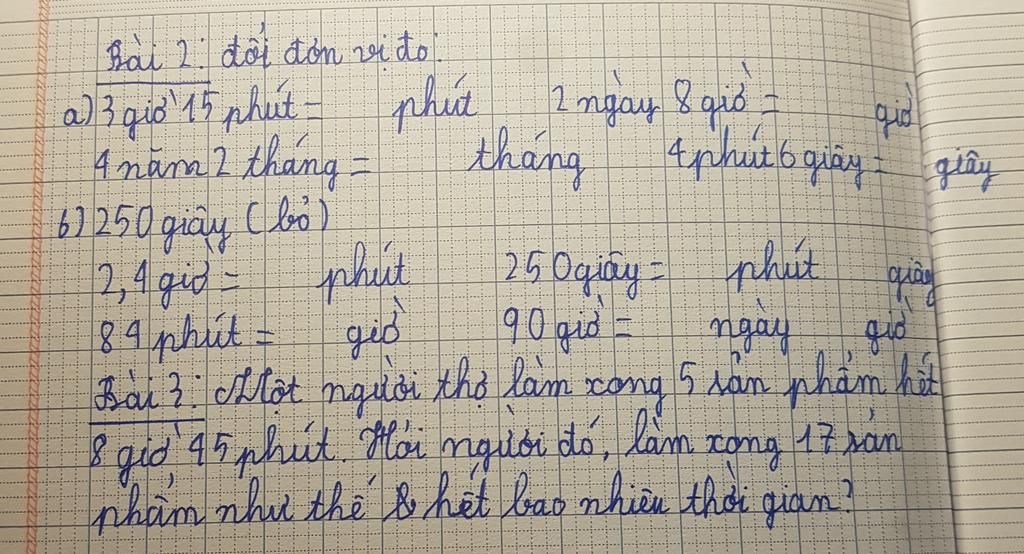 Bài 2: đổi đơn vị đo:
a) 3 giờ 15 phút = phút 2 ngày 8 giờ = giờ
4 năm 2 tháng = tháng 4 phút 6 giây = giây
b) 250 giây (bỏ)
2,4 giờ = phút 250 giây = phút giây
84 phút = giờ 90 giờ = ngày giờ
Bài 3: Một người thợ làm xong 5 sản phẩm hết
8 giờ 45 phút. Hỏi người đó, làm xong 17 sản
phẩm như thế hết bao nhiêu thời gian?